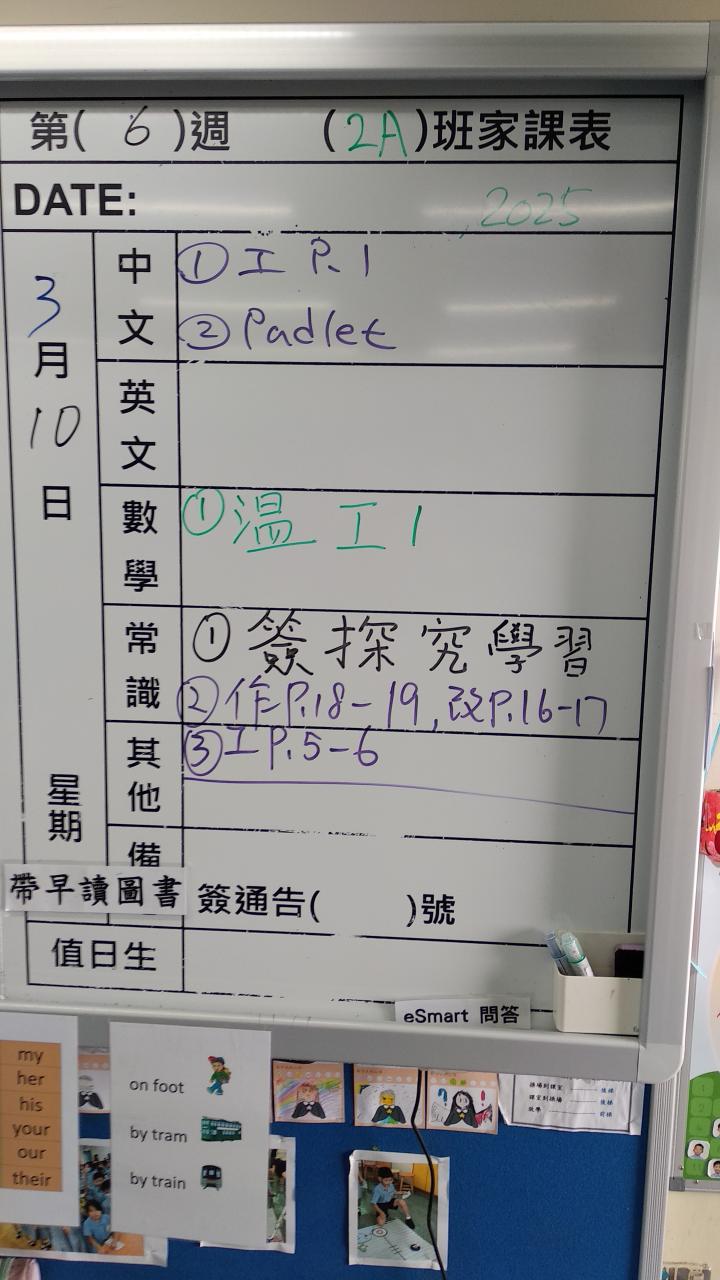 第(6)週 (2A)班家課表
DATE: 2025
3月10日 星期
中文 ①工 P.1
②Padlet
英文
數學 ①溫工1
常識 ①簽探究學習
②作P.18-19,改P.16-17
其他 ③工P.5-6
備
帶早讀圖書 簽通告( )號
值日生
eSmart 問答
my
her
his
your
our
their
on foot
by tram
by train